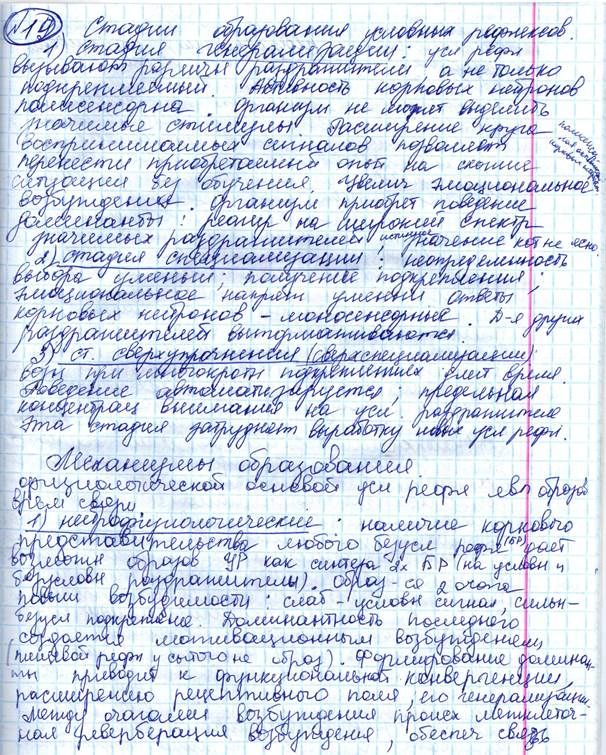 №19 Стадии образования условных рефлексов.
1) стадия генерализации: усл рефл
вызывают различн раздражители а не только
подкрепляемый. Активность корковых нейронов
полисенсорна. организм не может выделить
значимые стимулы. Расширение круга
воспринимаемых сигналов позволяет
перенести приобретаемый опыт на схожие
ситуации без обучения. Увелич эмоциональное
возбуждение. организм приобрет поведение
доминанты: реагир на широкий спектр
значимых раздражителей истинное значение кот не ясно.
2) стадия специализации: неопределенность
выбора уменьш, получение подкрепления;
эмоциональное напряж уменьш ответы
корковых нейронов - моносенсорные. Д-я других
раздражителей вытормаживаются.
3) ст. сверхупрочнения (сверхспециализации)
возн при многократн подкреплениях длит время.
Поведение автоматизируется; предельная
концентрац внимания на усл. раздражителе
Эта стадия затрудняет выработку новых усл рефл.
Механизмы образования
физиологической основой усл рефл явл образов
врем связи
1) нейрофизиологические: наличие коркового
представительства любого безусл рефл (БР) дает
возможн образов УР как синтеза 2х БР (на условн и
безусловн раздражитель). Образ-ся 2 очага
повыш возбудимости: слаб - условн сигнал, сильн-
безусл подкрепление. Доминантность последнего
создается мотивационным возбуждением
(пищевой рефл у сытого не образ). Формирование доминан-
ты приводит к функциональной конвергенции,
расширению рецептивного поля, его генерализации.
Между очагами возбуждения происх межклеточ-
ная реверберация возбуждения, обеспеч связь